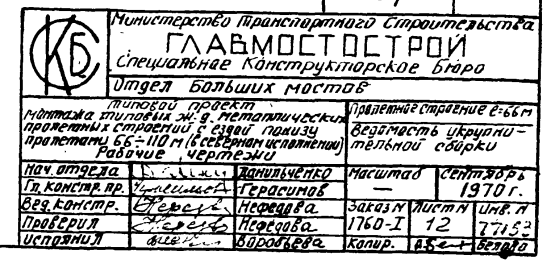 СКБ
Министерство Транспортного Строительства
ГЛАВМОСТОСТРОЙ
Специальное Конструкторское Бюро
Отдел Больших мостов
Типовой проект
монтажа типовых ж.д. металлических
пролетных строений с ездой понизу
пролетами 66÷110 м (в северном исполнении)
Рабочие чертежи
Пролетное строение ℓ=66м
Ведомость укрупни-
тельной сборки
Нач. отдела Данильченко Масштаб Сентябрь
Гл. констр. пр. Герасимов — 1970 г.
Вед. констр. Нефедова Заказ N Лист N Инв. N
Проверил Нефедова 1760-I 12 77153
исполнил Воробьева Копир. Белова